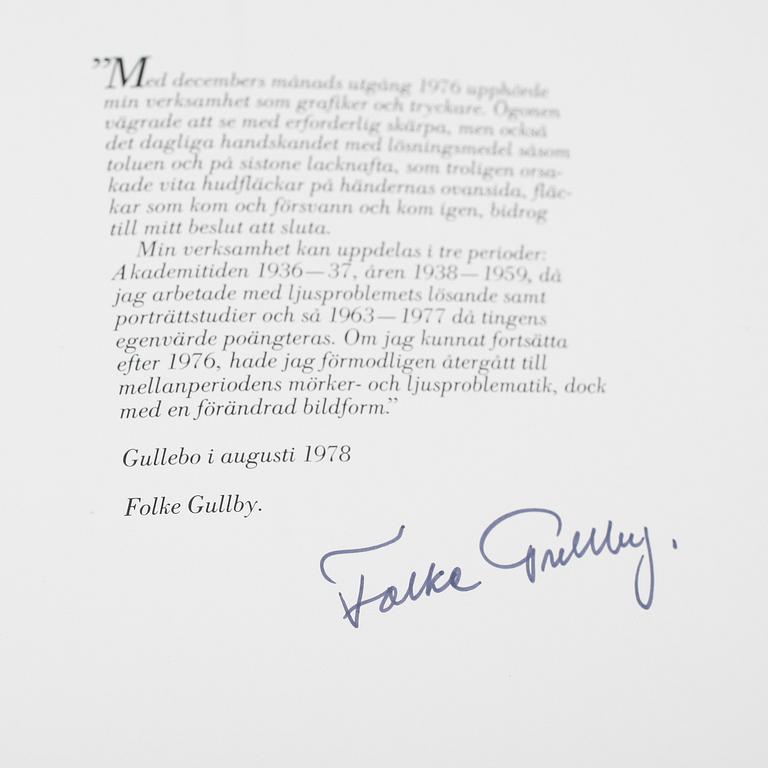 ”Med decembers månads utgång 1976 upphörde
min verksamhet som grafiker och tryckare. Ögonen
vägrade att se med erforderlig skärpa, men också
det dagliga handskandet med lösningsmedel såsom
toluen och på sistone lacknafta, som troligen orsa-
kade vita hudfläckar på händernas ovansida, fläc-
kar som kom och försvann och kom igen, bidrog
till mitt beslut att sluta.
Min verksamhet kan uppdelas i tre perioder:
Akademitiden 1936—37, åren 1938—1959, då
jag arbetade med ljusproblemets lösande samt
porträttstudier och så 1963—1977 då tingens
egenvärde poängteras. Om jag kunnat fortsätta
efter 1976, hade jag förmodligen återgått till
mellanperiodens mörker- och ljusproblematik, dock
med en förändrad bildform.”
Gullebo i augusti 1978
Folke Gullby.
Folke Gullby.